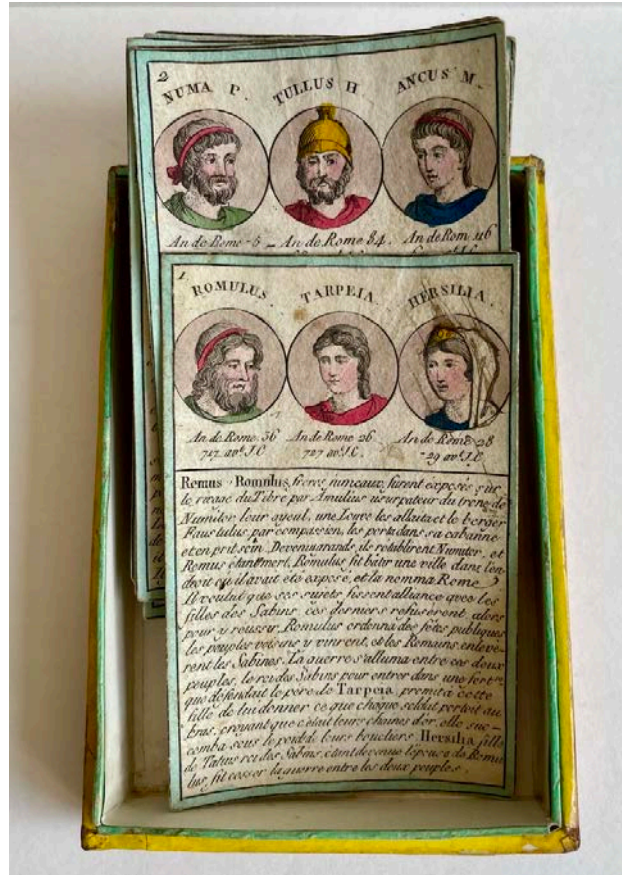 2
NUMA P. TULLUS H ANCUS M.
An de Rome An de Rome 84. An de Rom 116
1
ROMULUS. TARPEIA. HERSILIA.
An de Rome 36 An de Rome 26 An de Rome 28
717 avt. J.C 727 avt. J.C. 29 avt. J.C
Remus & Romulus, frères jumeaux, furent exposés sur
le rivage du Tibre par Amulius usurpateur du trone de
Numitor leur ayeul, une Louve les allaita et le berger
Faustulus par compassion, les porta dans sa cabanne
et en prit soin. Devenus grands, ils retablirent Numitor, et
Remus étant mort, Romulus fit bâtir une ville dans l'en-
droit où il avait été exposé, et la nomma Rome.
Il voulut que ses sujets fissent alliance avec les
filles des Sabins, ces derniers refusèrent, alors
pour y reussir, Romulus ordonna des fêtes publiques
les peuples voisins y vinrent, et les Romains enleve-
rent les Sabines. La guerre s'alluma entre ces deux
peuples, le roi des Sabins pour entrer dans une fort.
que defendait le pere de Tarpeia, promit à cette
fille de lui donner ce que chaque soldat portoit au
bras, croyant que c'était leurs chaines d'or, elle suc-
comba sous le poid de leurs boucliers. Hersilia, fille
de Tatius roi des Sabins, étant devenue l'épouse de Romu
lus, fit cesser la guerre entre les deux peuples.